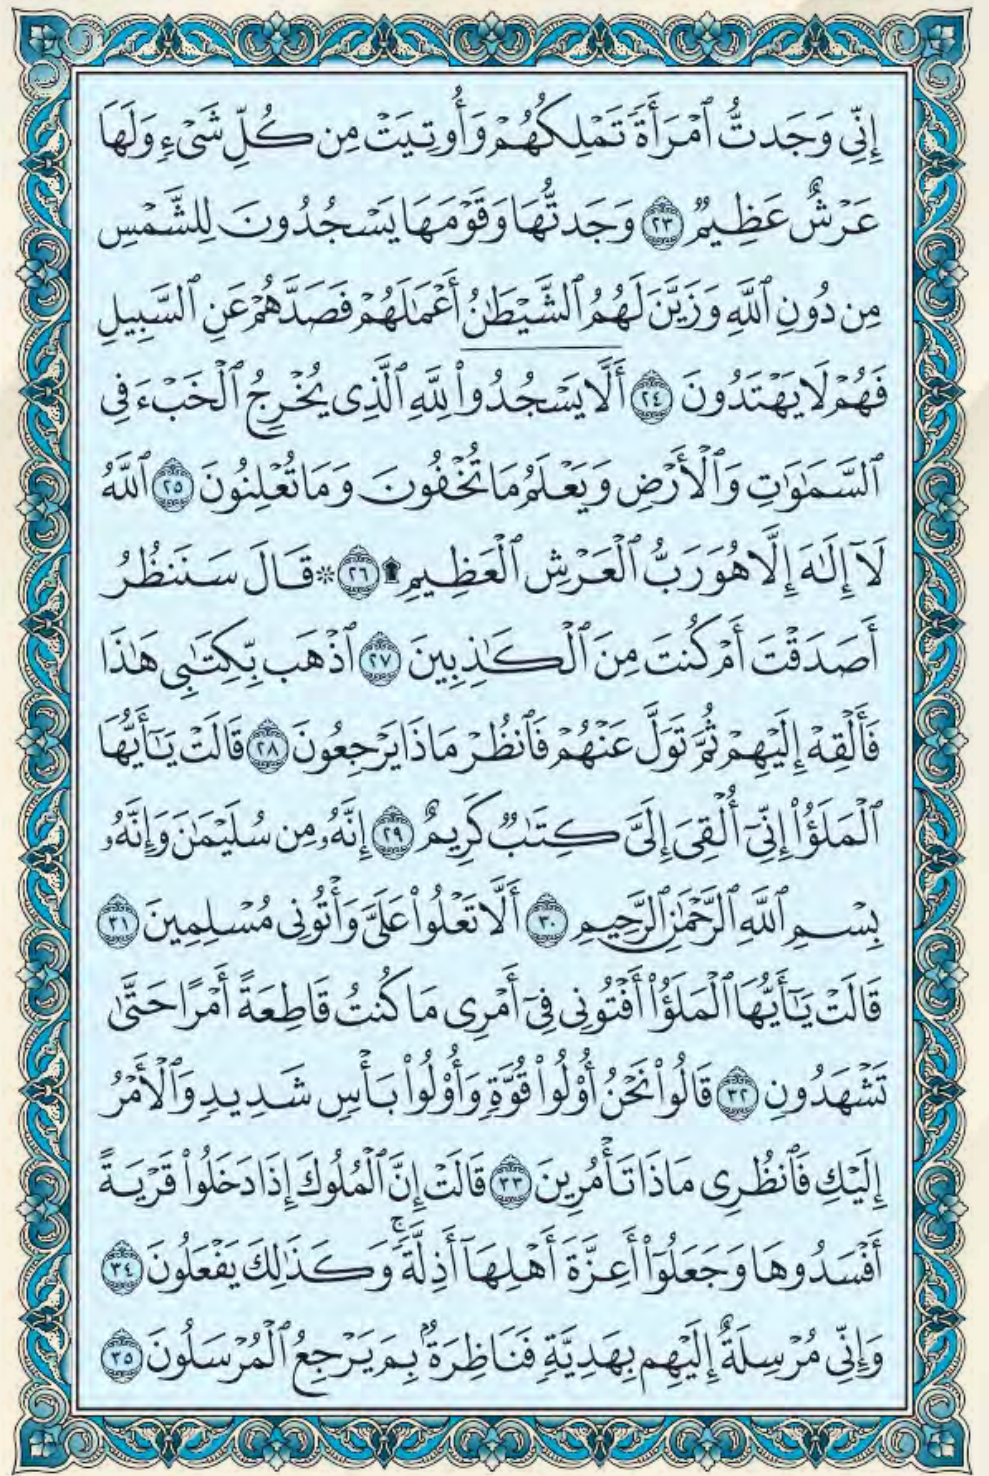 إِنِّى وَجَدتُّ ٱمْرَأَةً تَمْلِكُهُمْ وَأُوتِيَتْ مِن كُلِّ شَىْءٍ وَلَهَا
عَرْشٌ عَظِيمٌ ٢٣ وَجَدتُّهَا وَقَوْمَهَا يَسْجُدُونَ لِلشَّمْسِ
مِن دُونِ ٱللَّهِ وَزَيَّنَ لَهُمُ ٱلشَّيْطَٰنُ أَعْمَٰلَهُمْ فَصَدَّهُمْ عَنِ ٱلسَّبِيلِ
فَهُمْ لَا يَهْتَدُونَ ٢٤ أَلَّا يَسْجُدُوا۟ لِلَّهِ ٱلَّذِى يُخْرِجُ ٱلْخَبْءَ فِى
ٱلسَّمَٰوَٰتِ وَٱلْأَرْضِ وَيَعْلَمُ مَا تُخْفُونَ وَمَا تُعْلِنُونَ ٢٥ ٱللَّهُ
لَآ إِلَٰهَ إِلَّا هُوَ رَبُّ ٱلْعَرْشِ ٱلْعَظِيمِ ۩ ٢٦ ۞ قَالَ سَنَنظُرُ
أَصَدَقْتَ أَمْ كُنتَ مِنَ ٱلْكَٰذِبِينَ ٢٧ ٱذْهَب بِّكِتَٰبِى هَٰذَا
فَأَلْقِهْ إِلَيْهِمْ ثُمَّ تَوَلَّ عَنْهُمْ فَٱنظُرْ مَاذَا يَرْجِعُونَ ٢٨ قَالَتْ يَٰٓأَيُّهَا
ٱلْمَلَؤُا۟ إِنِّىٓ أُلْقِىَ إِلَىَّ كِتَٰبٌ كَرِيمٌ ٢٩ إِنَّهُۥ مِن سُلَيْمَٰنَ وَإِنَّهُۥ
بِسْمِ ٱللَّهِ ٱلرَّحْمَٰنِ ٱلرَّحِيمِ ٣٠ أَلَّا تَعْلُوا۟ عَلَىَّ وَأْتُونِى مُسْلِمِينَ ٣١
قَالَتْ يَٰٓأَيُّهَا ٱلْمَلَؤُا۟ أَفْتُونِى فِىٓ أَمْرِى مَا كُنتُ قَاطِعَةً أَمْرًا حَتَّىٰ
تَشْهَدُونِ ٣٢ قَالُوا۟ نَحْنُ أُو۟لُوا۟ قُوَّةٍ وَأُو۟لُوا۟ بَأْسٍ شَدِيدٍ وَٱلْأَمْرُ
إِلَيْكِ فَٱنظُرِى مَاذَا تَأْمُرِينَ ٣٣ قَالَتْ إِنَّ ٱلْمُلُوكَ إِذَا دَخَلُوا۟ قَرْيَةً
أَفْسَدُوهَا وَجَعَلُوٓا۟ أَعِزَّةَ أَهْلِهَآ أَذِلَّةً ۖ وَكَذَٰلِكَ يَفْعَلُونَ ٣٤
وَإِنِّى مُرْسِلَةٌ إِلَيْهِم بِهَدِيَّةٍ فَنَاظِرَةٌۢ بِمَ يَرْجِعُ ٱلْمُرْسَلُونَ ٣٥